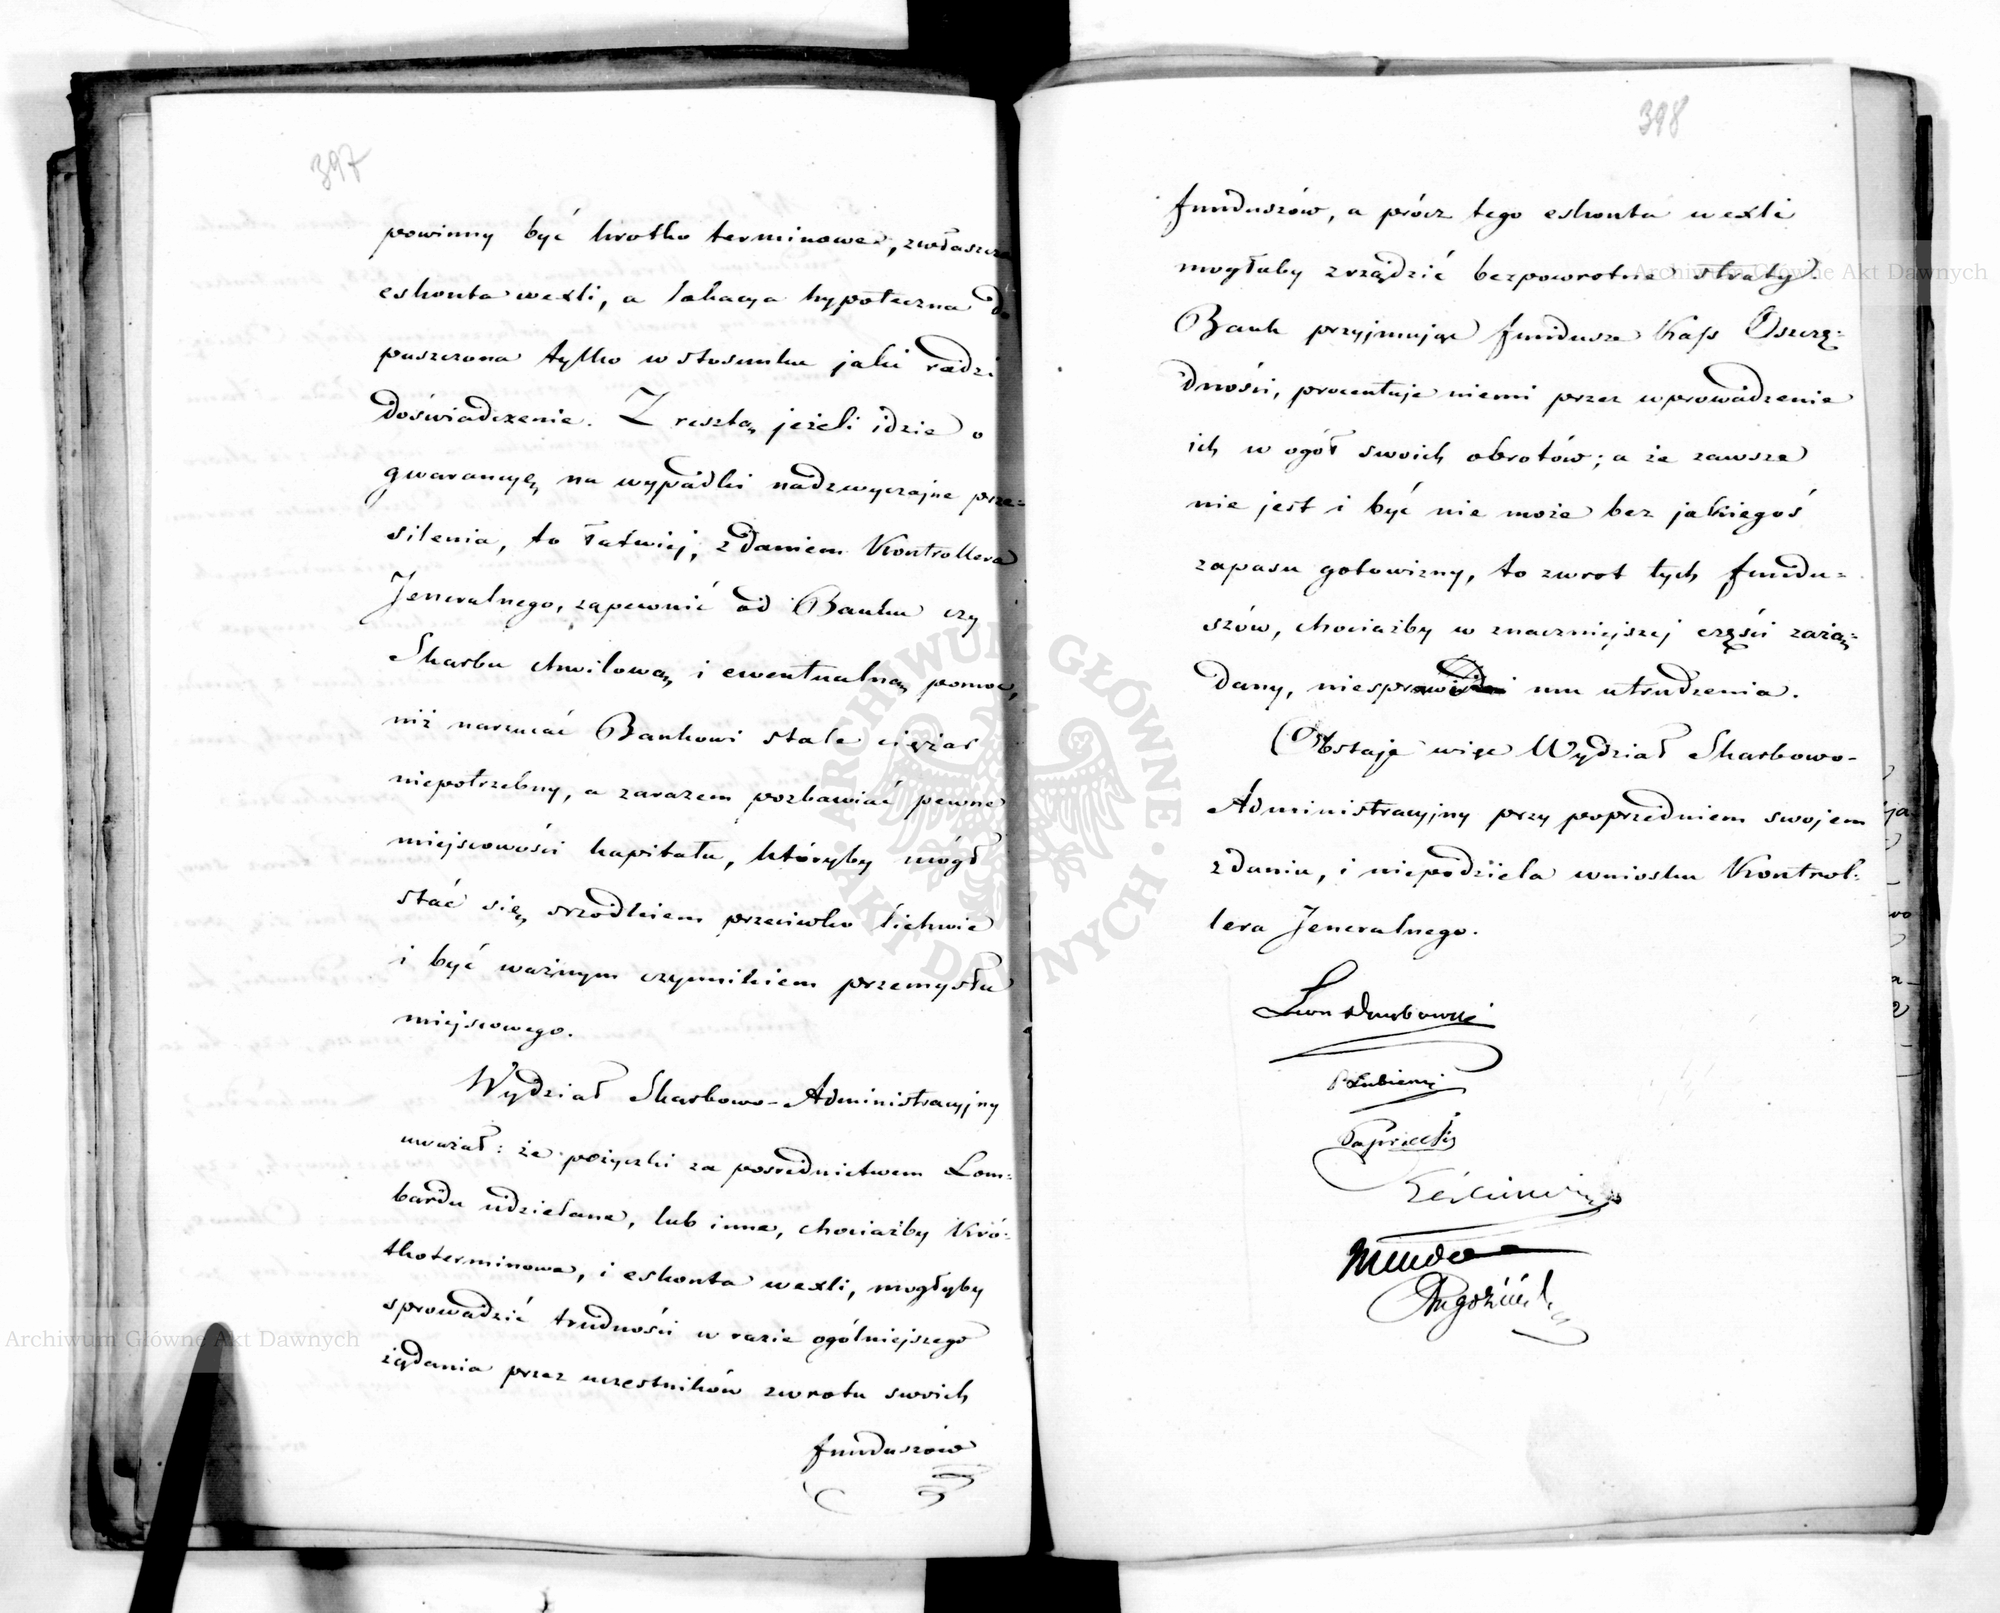 397
powinny być krotko terminowe, zwłaszcza
eskonta wexli, a lokacya hypoteczna do
puszczona tylko w stosunku jaki radzi
doświadczenie. Z resztą, jeżeli idzie o
gwarancyę, na wypadki nadzwyczajne prze-
silenia, to łatwiej, zdaniem Kontrollera
Jeneralnego, zapewnić od Banku czy
Skarbu chwilową, i ewentualną pomoc,
niż narzucać Bankowi stale ciężar
niepotrzebny, a zarazem pozbawiać pewne
miejscowości kapitału, któryby mógł
stać się, srzodkiem przeciwko lichwie
i być ważnym czynnikiem przemysłu
miejscowego.
Wydział Skarbowo-Administracyjny
uważał: że pożyczki za posrednictwem Lom=
bardu udzielane, lub inne, chociażby Kró=
tkoterminowe, i eskonta wexli, mogłyby
sprowadzić trudności w razie ogólniejszego
żądania przez uczestników zwrotu swoich
funduszów
398
funduszów, a prócz tego eskonta wexli
mogłaby zrządzić bezpowrotne straty.
Bank przyjmując fundusze Kass Oszczę=
dności, procentuje niemi przez wprowadzenie
ich w ogół swoich obrotów; a że zawsze
nie jest i być nie może bez jakiegoś
zapasu gotowizny, to zwrot tych fundu=
szów, chociażby w znaczniejszej części zażą=
dany, niesprawi mu utrudzenia.
Obstaje więc Wydział Skarbowo-
Administracyjny przy poprzedniem swojem
zdaniu, i niepodziela wniosku Kontrol=
lera Jeneralnego.
Leon Dembowski
Łubieński
Archiwum Główne Akt Dawnych
Archiwum Główne Akt Dawnych
ARCHIWUM GŁÓWNE · AKT DAWNYCH ·